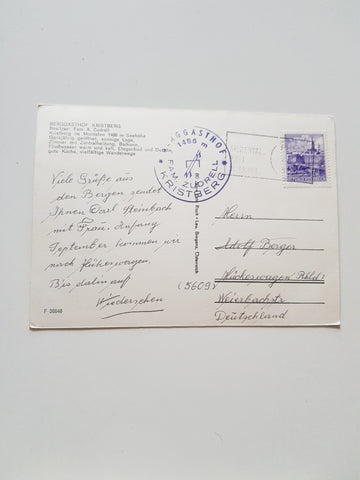 BERGGASTHOF KRISTBERG
Besitzer: Fam. A. Zudrell
Kristberg im Montafon 1486 m Seehöhe
Ganzjährig geöffnet, sonnige Lage,
Zimmer mit Zentralheizung, Balkone,
Fließwasser warm und kalt, Etagenbad und Dusche,
gute Küche, vielfältige Wanderwege
BERGGASTHOF
1486 m
FAM. ZUDRELL
KRISTBERG
Viele Grüße aus
den Bergen sendet
Ihnen Carl Steinbach
mit Frau. Anfang
September kommen wir
nach Hückeswagen.
Bis dahin auf
Wiedersehen
Herrn
Adolf Berger
(5609) Hückeswagen Rhld
Weierbachstr
Deutschland
F 30840